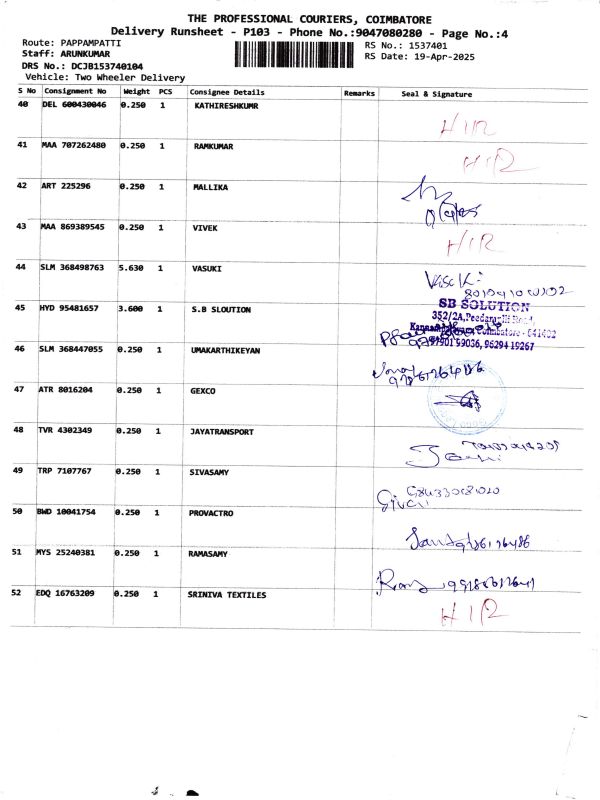 THE PROFESSIONAL COURIERS, COIMBATORE
Delivery Runsheet - P103 - Phone No.:9047080280 - Page No.:4
Route: PAPPAMPATTI
RS No.: 1537401
Staff: ARUNKUMAR
RS Date: 19-Apr-2025
DRS No.: DCJB153740104
Vehicle: Two Wheeler Delivery
S No Consignment No Weight PCS Consignee Details Remarks Seal & Signature
40 DEL 600430046 0.250 1 KATHIRESHKUMR
H I R
41 MAA 707262480 0.250 1 RAMKUMAR
H I R
42 ART 225296 0.250 1 MALLIKA
43 MAA 869389545 0.250 1 VIVEK
H I R
44 SLM 368498763 5.630 1 VASUKI
Vasuki
45 HYD 95481657 3.600 1 S.B SLOUTION
SB SOLUTION
352/2A, Peedampalli Road,
Coimbatore - 641402
99036, 96294 19267
46 SLM 368447055 0.250 1 UMAKARTHIKEYAN
47 ATR 8016204 0.250 1 GEXCO
48 TVR 4302349 0.250 1 JAYATRANSPORT
49 TRP 7107767 0.250 1 SIVASAMY
50 BWD 10041754 0.250 1 PROVACTRO
51 MYS 25240381 0.250 1 RAMASAMY
52 EDQ 16763209 0.250 1 SRINIVA TEXTILES
H I R